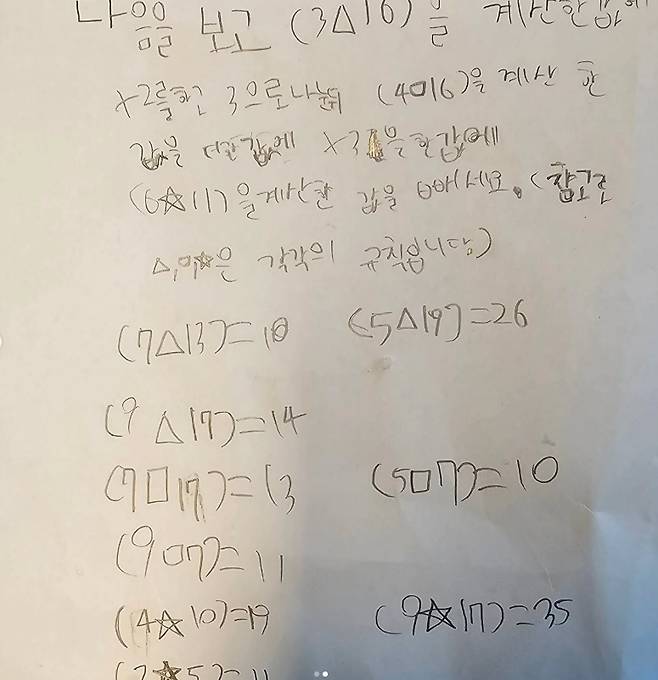 다음을 보고 (3△16)을 계산한값에
×2를하고 3으로나눠 (4□16)을 계산 한
값을 더한값에 ×3을한값에
(6☆11)을계산한 값을 빼세요. (참고로
△,□,☆은 각각의 규칙입니당)
(7△13)=10 (5△19)=26
(9△17)=14
(7□17)=13 (5□7)=10
(9□7)=11
(4☆10)=19 (9☆17)=35